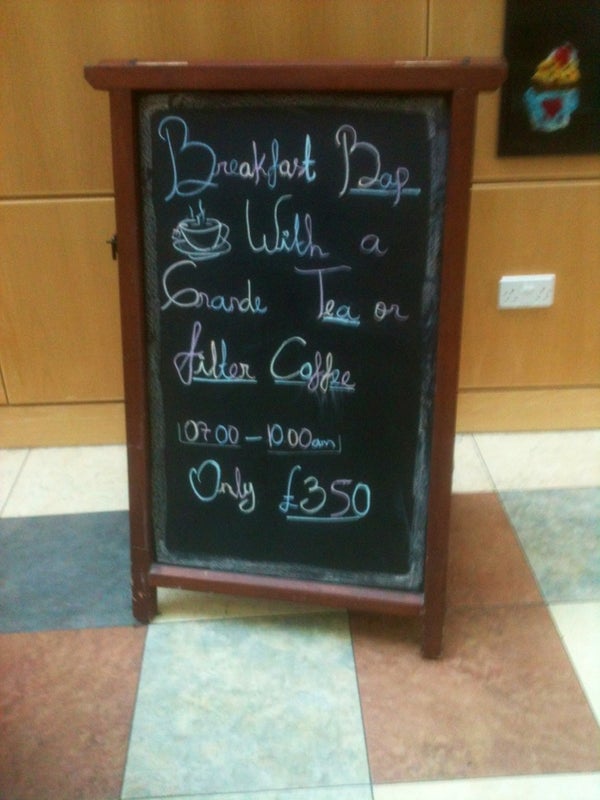 Breakfast Bap
With a
Grande Tea or
filter Coffee
07 00 - 10 00am
Only £3 50